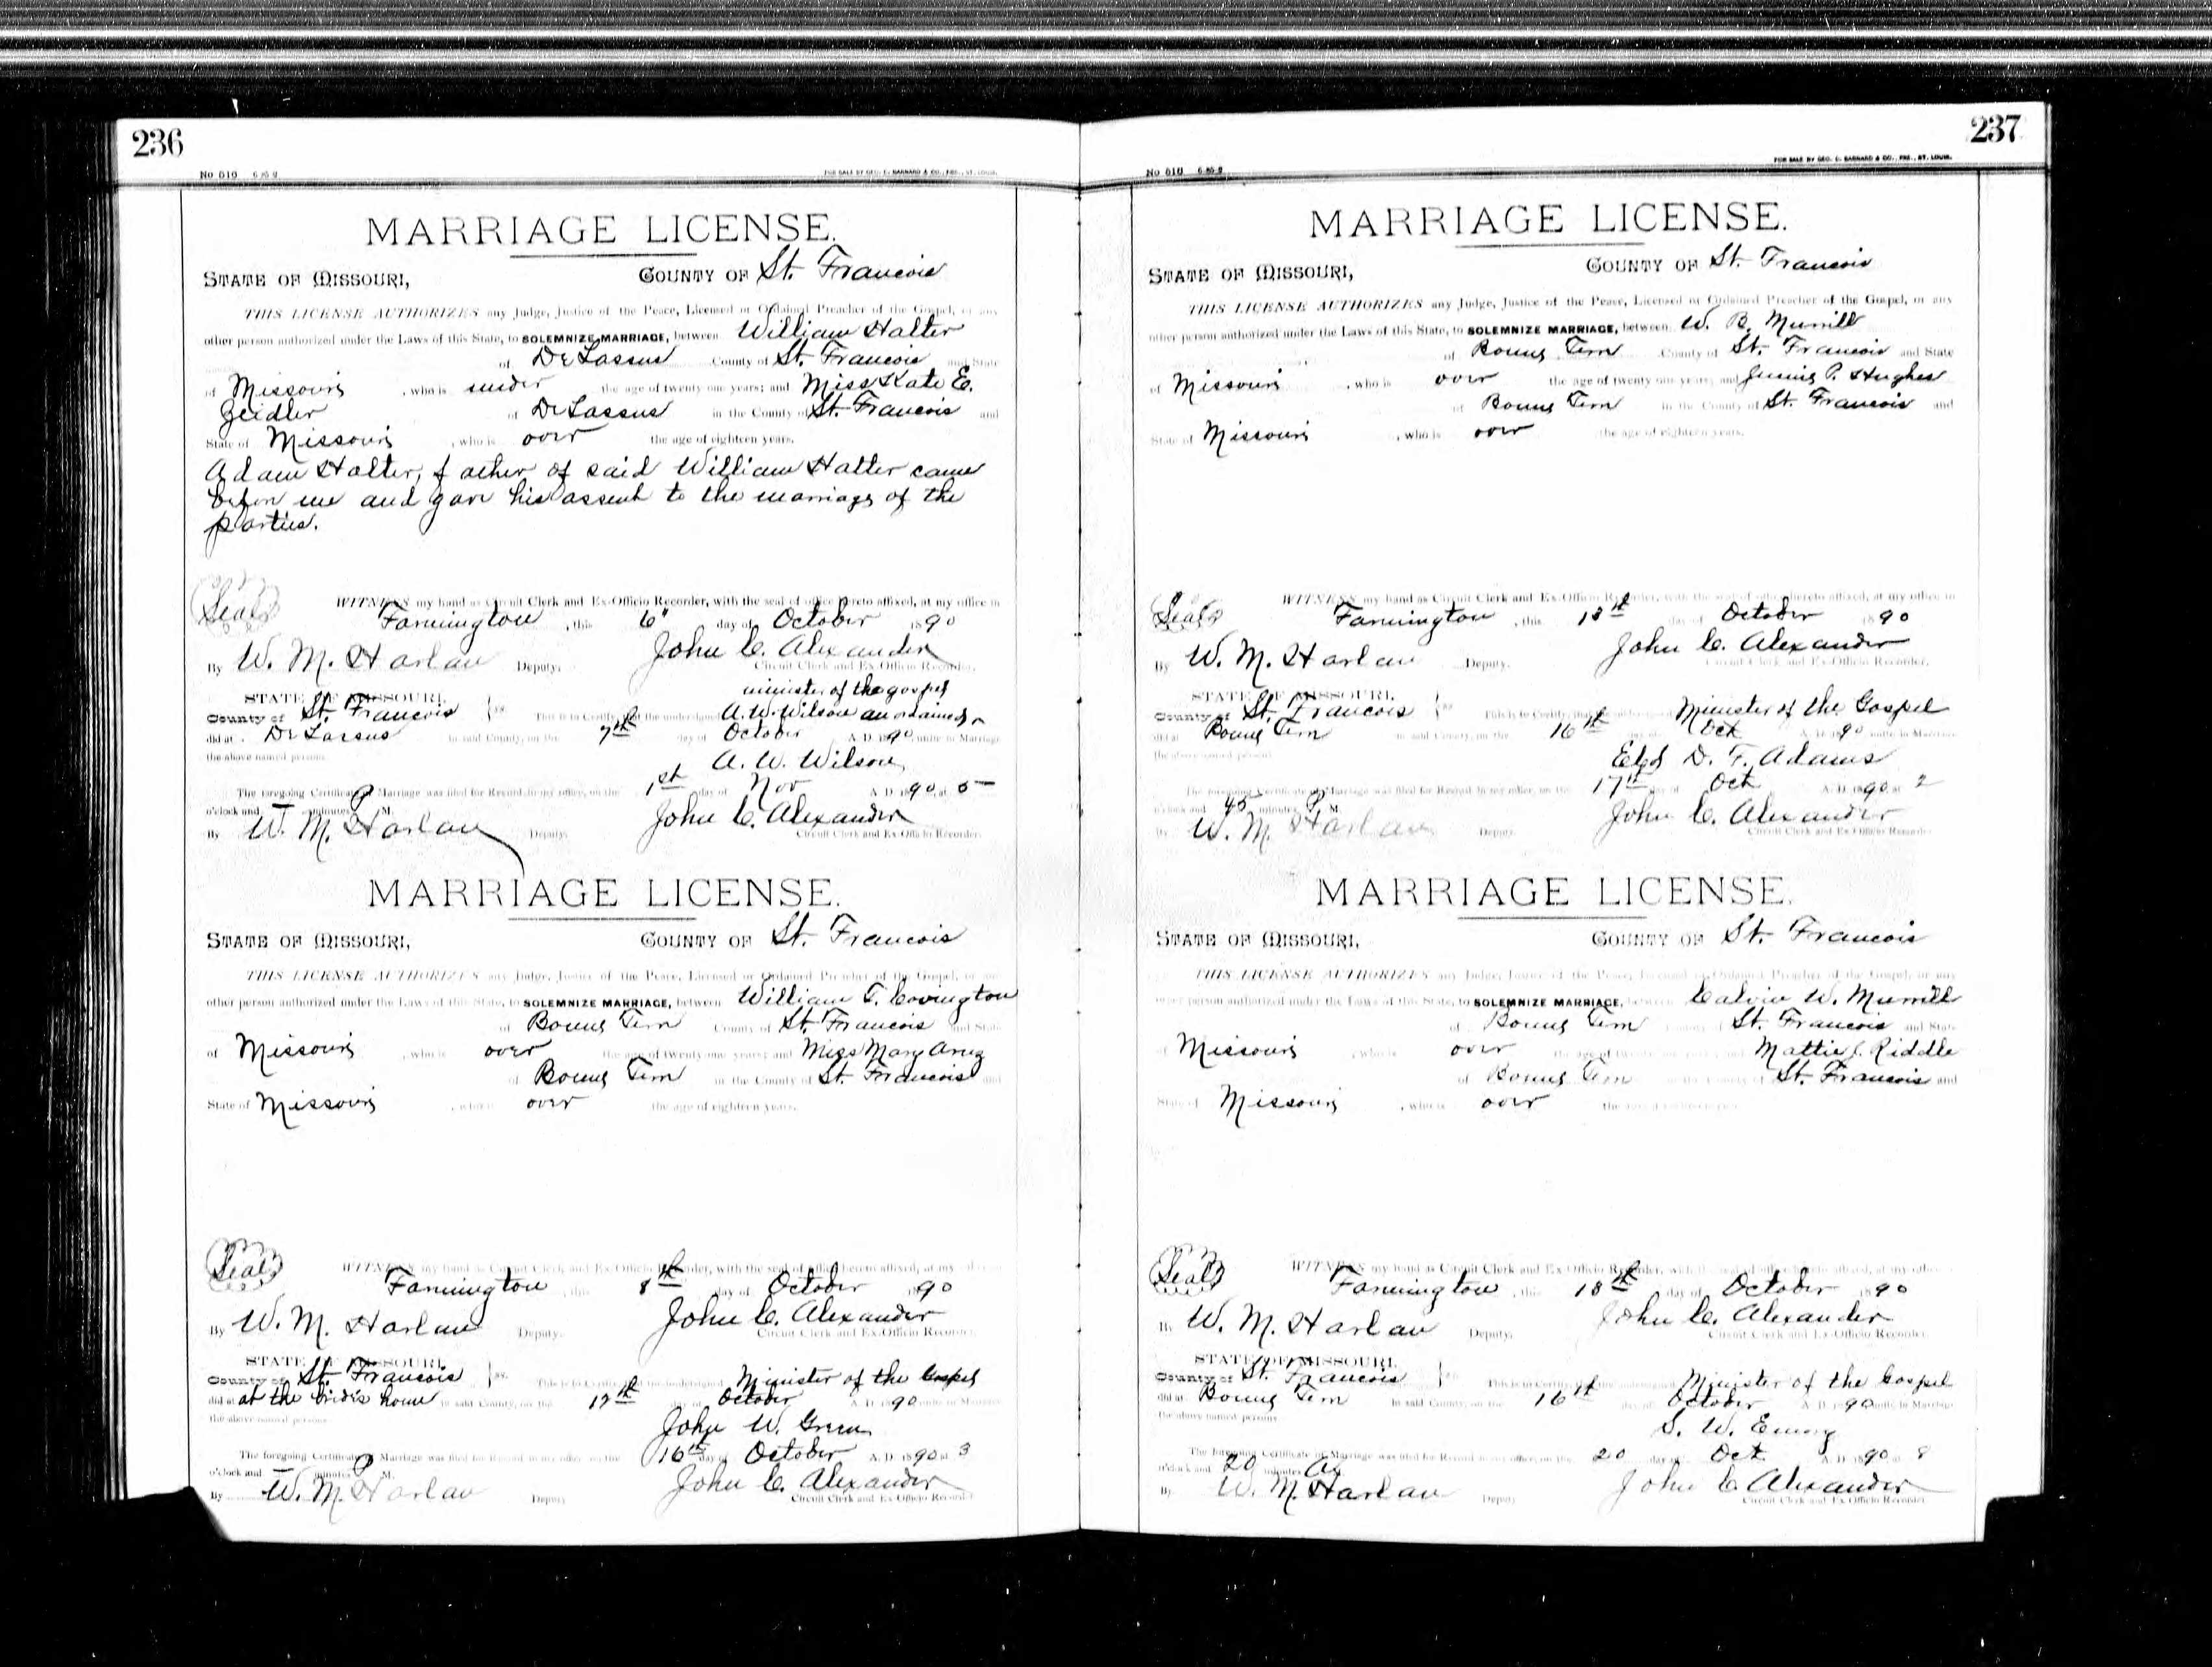 236
No 516 6 85 2
FOR SALE BY GEO. D. BARNARD & CO., PRS., ST. LOUIS.
MARRIAGE LICENSE.
STATE OF MISSOURI, COUNTY OF St. Francois
THIS LICENSE AUTHORIZES any Judge, Justice of the Peace, Licensed or Ordained Preacher of the Gospel, or any
other person authorized under the Laws of this State, to SOLEMNIZE MARRIAGE, between William Halter
of De Lassus County of St. Francois and State
of Missouri , who is under the age of twenty one years; and Miss Kate E.
Zeidler of De Lassus in the County of St. Francois and
State of Missouri , who is over the age of eighteen years.
Adam Halter, father of said William Halter came
before me and gave his assent to the marriage of the
parties.
Seal WITNESS my hand as Circuit Clerk and Ex-Officio Recorder, with the seal of office hereto affixed, at my office in
Farmington , this 6" day of October 1890
By W. M. Harlan Deputy. John C. Alexander
Circuit Clerk and Ex-Officio Recorder.
minister of the gospel
STATE OF MISSOURI,
County of St. Francois ss. This is to Certify, that the undersigned A. W. Wilson an ordained
did at De Lassus in said County, on the 7th day of October A. D. 1890, unite in Marriage
the above named persons.
A. W. Wilson
The foregoing Certificate of Marriage was filed for Record in my office, on the 1st day of Nov A. D. 1890, at 5
o'clock and — minutes P M.
By W. M. Harlan Deputy. John C. Alexander
Circuit Clerk and Ex-Officio Recorder.
MARRIAGE LICENSE.
STATE OF MISSOURI, COUNTY OF St. Francois
THIS LICENSE AUTHORIZES any Judge, Justice of the Peace, Licensed or Ordained Preacher of the Gospel, or any
other person authorized under the Laws of this State, to SOLEMNIZE MARRIAGE, between William T. Covington
of Bonne Terre County of St. Francois and State
of Missouri , who is over the age of twenty one years; and Miss Mary
of Bonne Terre in the County of St. Francois and
State of Missouri , who is over the age of eighteen years.
Seal WITNESS my hand as Circuit Clerk and Ex-Officio Recorder, with the seal of office hereto affixed, at my office in
Farmington , this 8th day of October 1890
By W. M. Harlan Deputy. John C. Alexander
Circuit Clerk and Ex-Officio Recorder.
STATE OF MISSOURI,
County of St. Francois ss. This is to Certify, that the undersigned Minister of the Gospel
did at at the bride's home in said County, on the 12th day of October A. D. 1890 unite in Marriage
the above named persons.
John W. Green
The foregoing Certificate of Marriage was filed for Record in my office, on the 16th day of October A. D. 1890 at 3
o'clock and — minutes P M.
By W. M. Harlan Deputy John C. Alexander
Circuit Clerk and Ex-Officio Recorder.
237
No 516 6 85 2
FOR SALE BY GEO. D. BARNARD & CO., PRS., ST. LOUIS.
MARRIAGE LICENSE.
STATE OF MISSOURI, COUNTY OF St. Francois
THIS LICENSE AUTHORIZES any Judge, Justice of the Peace, Licensed or Ordained Preacher of the Gospel, or any
other person authorized under the Laws of this State, to SOLEMNIZE MARRIAGE, between W. B. Murrill
of Bonne Terre County of St. Francois and State
of Missouri , who is over the age of twenty one years; and Jennie P. Hughes
of Bonne Terre in the County of St. Francois and
State of Missouri , who is over the age of eighteen years.
Seal WITNESS my hand as Circuit Clerk and Ex-Officio Recorder, with the seal of office hereto affixed, at my office in
Farmington , this 13th day of October 1890
By W. M. Harlan Deputy. John C. Alexander
Circuit Clerk and Ex-Officio Recorder.
STATE OF MISSOURI,
County of St. Francois ss. This is to Certify, that the undersigned Minister of the Gospel
did at Bonne Terre in said County, on the 16th day of Oct A. D. 1890 unite in Marriage
the above named persons.
Eld D. F. Adams
The foregoing Certificate of Marriage was filed for Record in my office, on the 17th day of Oct A. D. 1890 at 2
o'clock and 45 minutes P. M.
By W. M. Harlan Deputy John C. Alexander
Circuit Clerk and Ex-Officio Recorder
MARRIAGE LICENSE.
STATE OF MISSOURI, COUNTY OF St. Francois
THIS LICENSE AUTHORIZES any Judge, Justice of the Peace, Licensed or Ordained Preacher of the Gospel, or any
other person authorized under the Laws of this State, to SOLEMNIZE MARRIAGE, between Calvin W. Murrill
of Bonne Terre County of St. Francois and State
of Missouri , who is over the age of twenty one years; and Mattie J. Riddle
of Bonne Terre in the County of St. Francois and
State of Missouri , who is over the age of eighteen years.
Seal WITNESS my hand as Circuit Clerk and Ex-Officio Recorder, with the seal of office hereto affixed, at my office
Farmington , this 13th day of October 1890
By W. M. Harlan Deputy. John C. Alexander
Circuit Clerk and Ex-Officio Recorder.
STATE OF MISSOURI,
County of St. Francois ss. This is to Certify, that the undersigned Minister of the Gospel
did at Bonne Terre in said County, on the 16th day of October A. D. 1890 unite in Marriage
the above named persons
S. W. Emory
The foregoing Certificate of Marriage was filed for Record in my office, on the 20 day of Oct A. D. 1890 at 8
o'clock and 20 minutes A M.
By W. M. Harlan Deputy John C. Alexander
Circuit Clerk and Ex-Officio Recorder